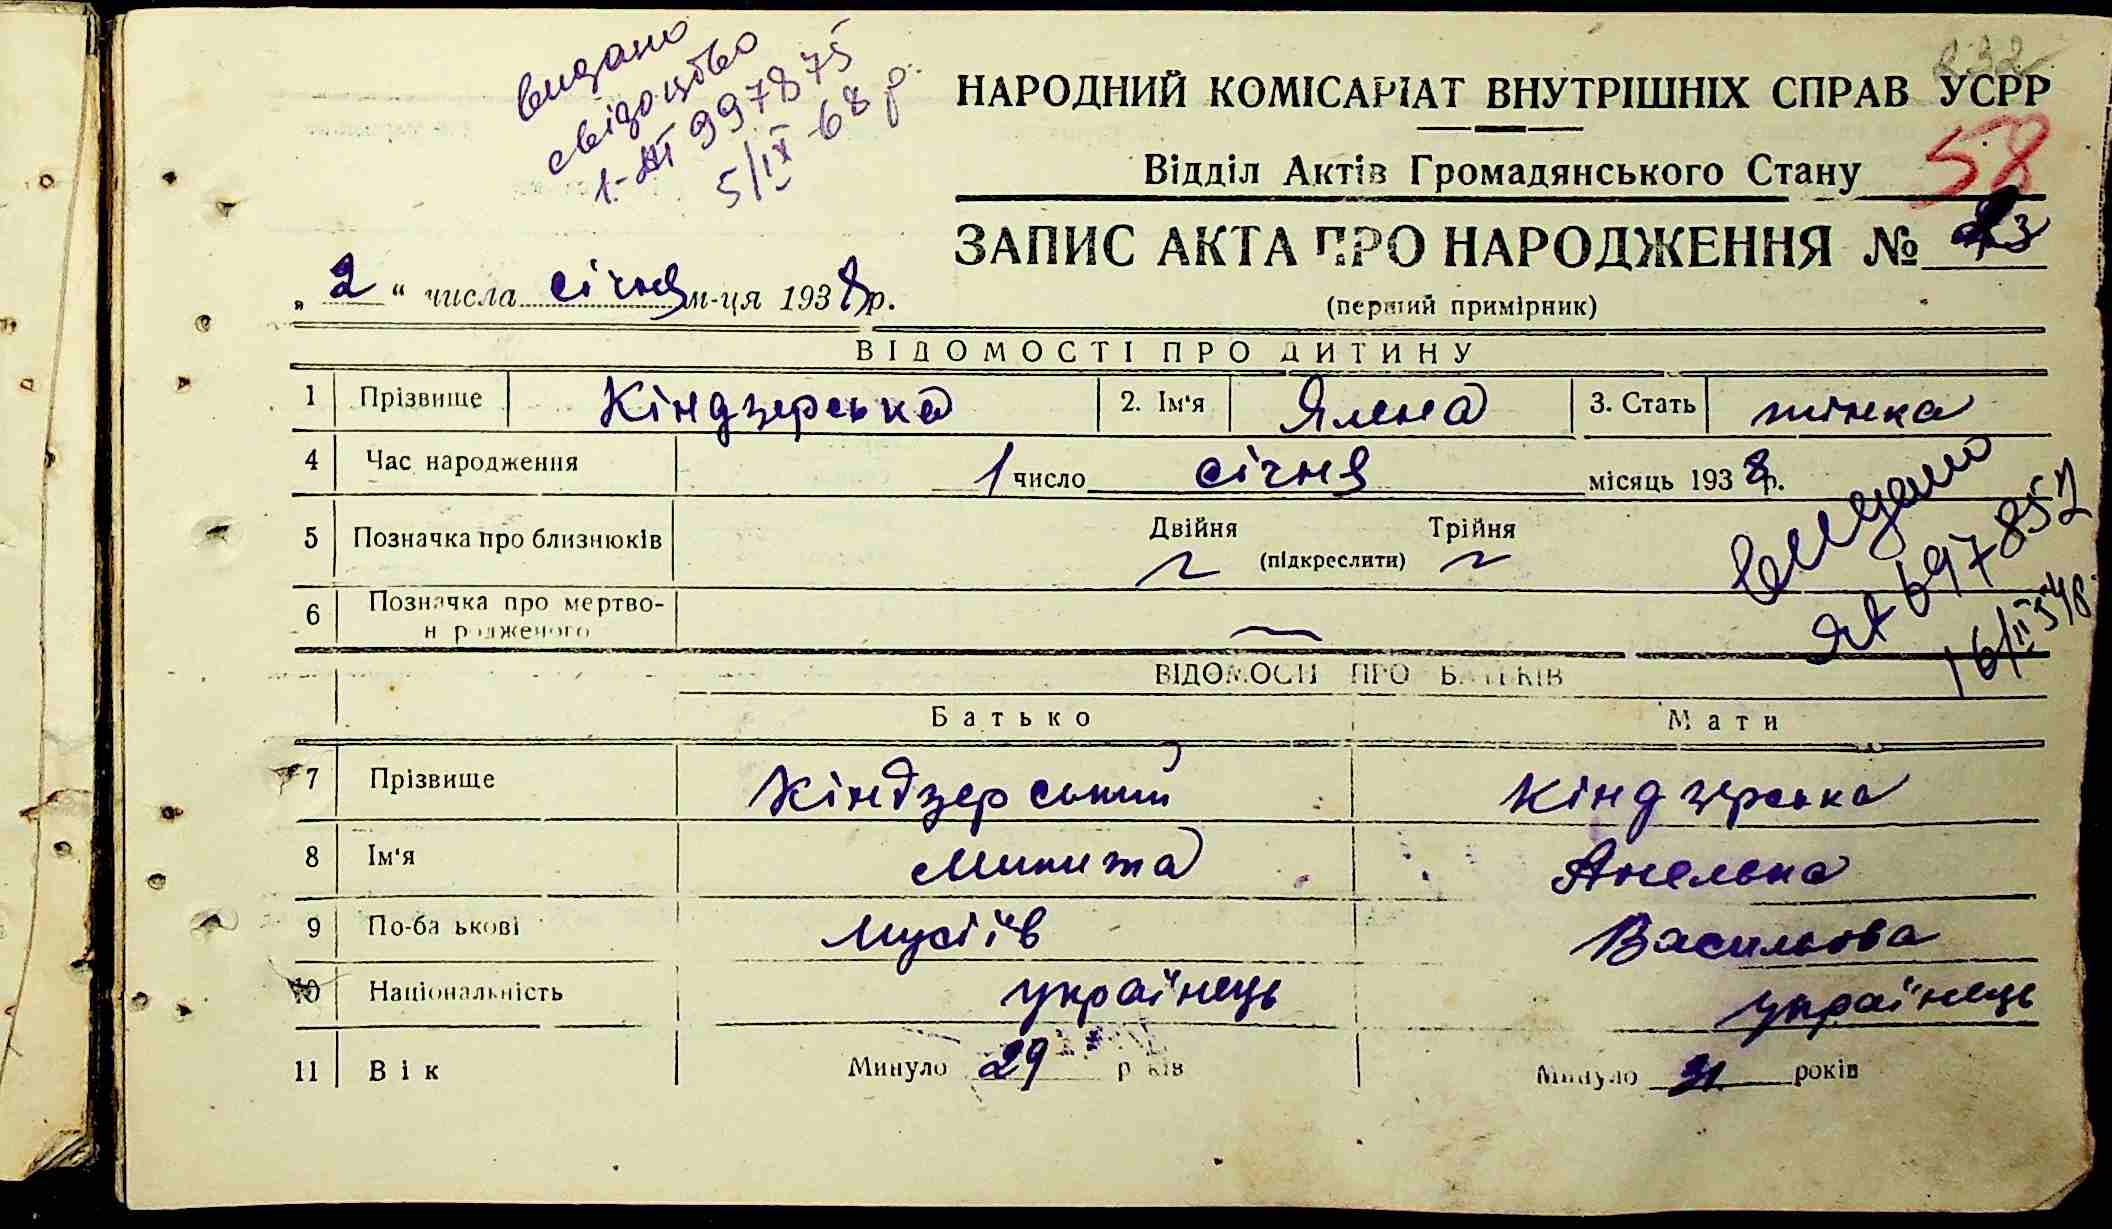 видано
свідоцтво
1-АП 997875
5/IX-68 р.
232
НАРОДНИЙ КОМІСАРІАТ ВНУТРІШНІХ СПРАВ УСРР
Відділ Актів Громадянського Стану
58
ЗАПИС АКТА ПРО НАРОДЖЕННЯ №
„ 2 “ числа січня м-ця 1938 р.
(перший примірник)
ВІДОМОСТІ ПРО ДИТИНУ
1 Прізвище Кіндзерська 2. Ім'я Ялена 3. Стать жінка
4 Час народження 1 число січня місяць 1938 р.
5 Позначка про близнюків Двійня Трійня
(підкреслити)
6 Позначка про мертво-
н родженого
видано
697852
16/II
ВІДОМОСТІ ПРО БАТЬКІВ
Батько Мати
7 Прізвище Кіндзерський Кіндзерська
8 Ім'я Микита Анелька
9 По-ба ькові Мусіїв Василькова
10 Національність українець українець
11 Вік Минуло 29 р ків Минуло 31 років